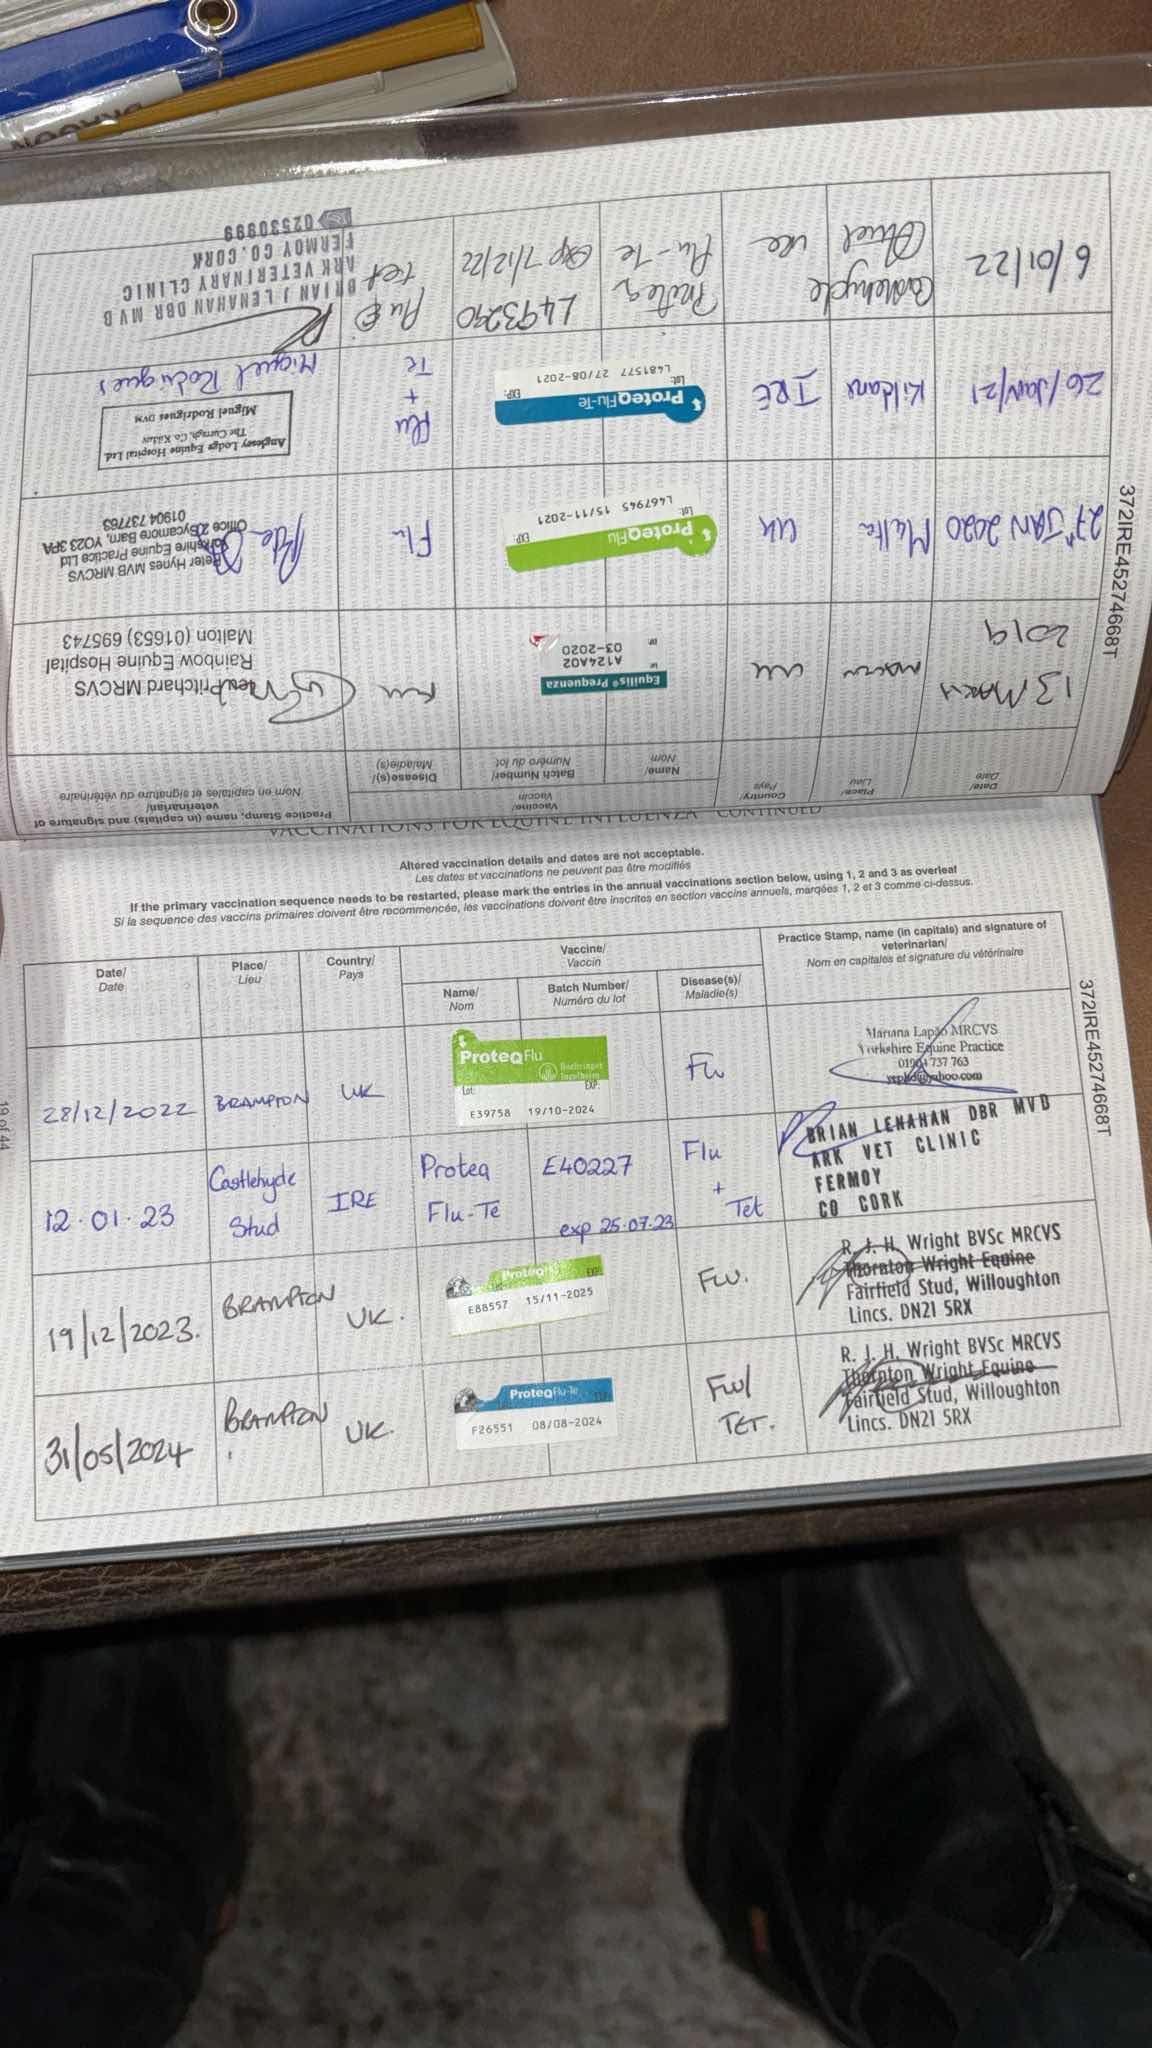 Date/
Date
Place/
Lieu
Country/
Pays
Vaccine/
Vaccin
Name/
Nom
Batch Number/
Numéro du lot
Disease(s)/
Maladie(s)
Practice Stamp, name (in capitals) and signature of
veterinarian/
Nom en capitales et signature du vétérinaire
13 MARCH
2019
UK
Equilis® Prequenza
A124A02
03-2020
Flu
Pritchard MRCVS
Rainbow Equine Hospital
Malton (01653) 695743
27th JAN 2020
UK
ProteqFlu
Lot:
EXP:
L467945 15/11-2021
Flu
Peter Hynes MVB MRCVS
Yorkshire Equine Practice Ltd
Office 2 Sycamore Barn, YO23 3PA
01904 737763
26/JAN/21
Kildare
IRE
ProteqFlu-Te
Lot:
EXP:
L481577 27/08-2021
Flu
+
Te
Anglesey Lodge Equine Hospital Ltd.
The Curragh, Co. Kildare
Miguel Rodrigues DVM
Miguel Rodrigues
6/01/22
Castlehyde
Proteq
Flu-Te
L493290
exp 7/12/22
Flu &
tet
BRIAN J LENAHAN DBR MVB
ARK VETERINARY CLINIC
FERMOY CO. CORK
02530999
372IRE45274668T
VACCINATIONS FOR EQUINE INFLUENZA CONTINUED
Altered vaccination details and dates are not acceptable.
Les dates et vaccinations ne peuvent pas être modifiés
If the primary vaccination sequence needs to be restarted, please mark the entries in the annual vaccinations section below, using 1, 2 and 3 as overleaf
Si la sequence des vaccins primaires doivent être recommencée, les vaccinations doivent être inscrites en section vaccins annuels, marqées 1, 2 et 3 comme ci-dessus.
Date/
Date
Place/
Lieu
Country/
Pays
Vaccine/
Vaccin
Name/
Nom
Batch Number/
Numéro du lot
Disease(s)/
Maladie(s)
Practice Stamp, name (in capitals) and signature of
veterinarian/
Nom en capitales et signature du vétérinaire
28/12/2022
BRAMPTON
UK
ProteqFlu
Boehringer
Ingelheim
Lot:
EXP:
E39758 19/10-2024
Flu
Mariana Lapão MRCVS
Yorkshire Equine Practice
01904 737 763
12.01.23
Castlehyde
Stud
IRE
Proteq
Flu-Te
E40227
exp 25.07.23
Flu
+
Tet
BRIAN LENAHAN DBR MVB
ARK VET CLINIC
FERMOY
CO CORK
19/12/2023.
BRAMPTON
UK.
ProteqFlu
EXP:
E88557 15/11-2025
FLU.
R. J. H. Wright BVSc MRCVS
Thornton Wright Equine
Fairfield Stud, Willoughton
Lincs. DN21 5RX
31/05/2024
BRAMPTON
UK.
ProteqFlu-Te
F26551 08/08-2024
FLU/
TET.
R. J. H. Wright BVSc MRCVS
Thornton Wright Equine
Fairfield Stud, Willoughton
Lincs. DN21 5RX
372IRE45274668T
19 of 44